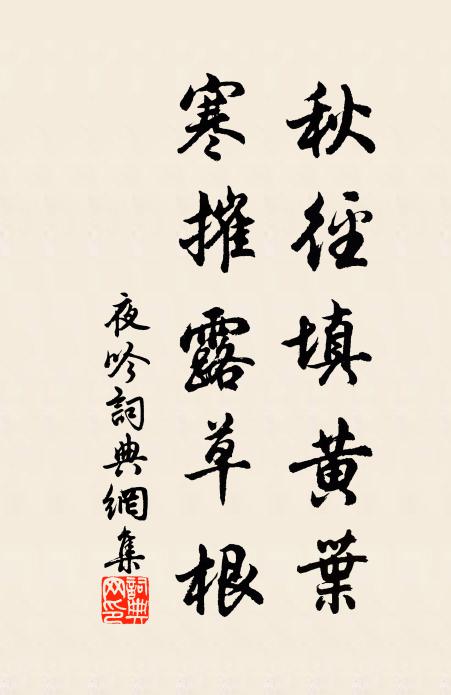 秋徑填黃葉
寒摧露草根
夜吟詞典網集
詞典網印